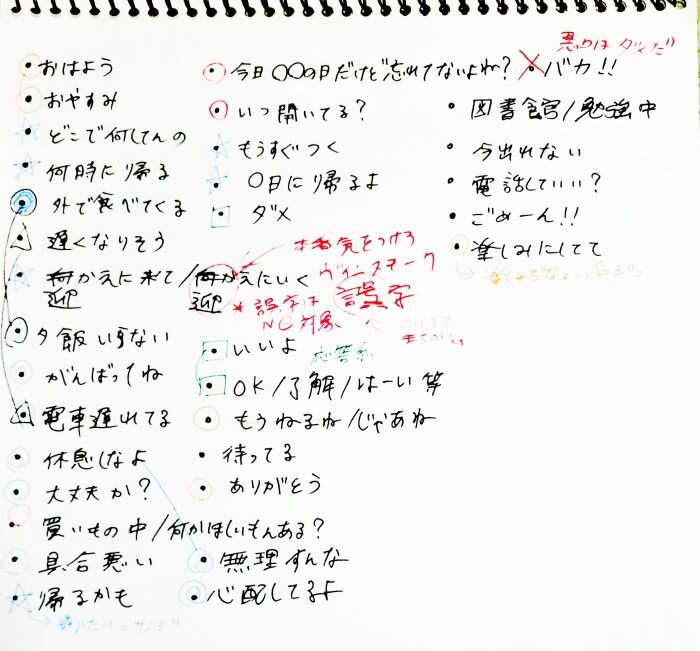 おはよう
おやすみ
どこで何してんの
何時に帰る
外で食べてくる
遅くなりそう
かえに来て/ がえにいく
迎 迎
夕飯いらない
がんばってね
電車遅れてる
休息しなよ
大丈夫か?
買いもの中/何かほしいもんある?
具合悪い
帰るかも
今日〇〇の日だけど忘れてないよね?
いつ開いてる?
もうすぐつく
〇日に帰るよ
ダメ
本番気をつけろ
誤字
*誤字は
NG対象
いいよ
応答系
OK/了解/はーい 等
もうねるね/じゃあね
待ってる
ありがとう
無理すんな
心配してるよ
悪口は ダメだ!
バカ!!
図書館/勉強中
今出れない
電話していい?
ごめーん!!
楽しみにしてて